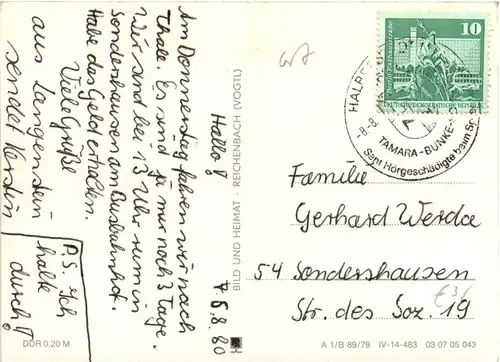 Hallo! 5.8.80
Am Donnerstag fahren wir nach
Thale. Es sind ja nur noch 3 Tage.
Wir sind bei 13 Uhr rum in
Sondershausen am Busbahnhof.
Habe das Geld erhalten.
Viel Grüße
aus Langenstein
sendet Kerstin
P.S. Ich
halte
durch!
DDR 0,20 M
BILD UND HEIMAT · REICHENBACH (VOGTL)
10
Berlin, Rathausstraße
DEUTSCHE DEMOKRATISCHE REPUBLIK
TAMARA-BUNKE-
Familie
Gerhard Werda
54 Sondershausen
Str. des Soz. 19
€ 3,-
A 1/B 89/79 IV-14-483 03 07 05 043